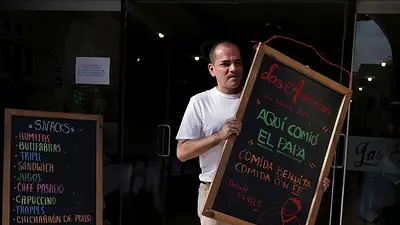 SNACKS
- HUMITAS
- BUTIFARRAS
- TRIPLE
- SANDWICH
- JUGOS
- CAFÉ PASADO
- CAPUCCINO
- FRAPPES
- CHICHARRÓN DE POLLO
AQUÍ COMIÓ
EL PAPA
COMIDA BENDITA
COMIDA CON FE
Desde
Las